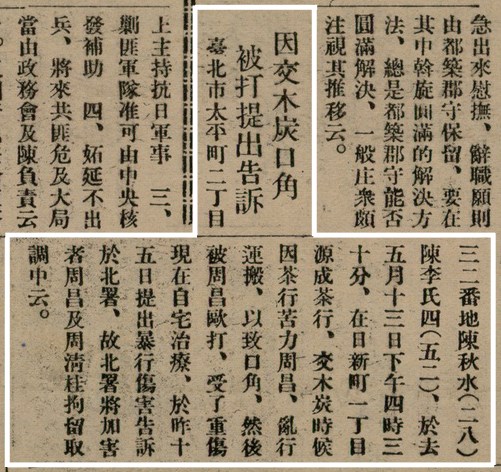 急出來慰撫、辭職願則
由都築郡守保留、要在
其中斡旋圓滿的解決方
法、總是都築郡守能否
圓滿解決、一般庄衆頗
注視其推移云。
因交木炭口角
被打提出告訴
臺北市太平町二丁目
三二番地陳秋水(二八)
陳李氏四(五二)、於去
五月十三日下午四時三
十分、在日新町一丁目
源成茶行、交木炭時候
因茶行苦力周昌、亂行
運搬、以致口角、然後
被周昌歐打、受了重傷
現在自宅治療、於昨十
五日提出暴行傷害告訴
於北署、故北署將加害
者周昌及周清桂拘留取
調中云。
上主持抗日軍事 三、
剿匪軍隊准可由中央核
發補助 四、妬延不出
兵、將來共匪危及大局
當由政務會及陳負責云